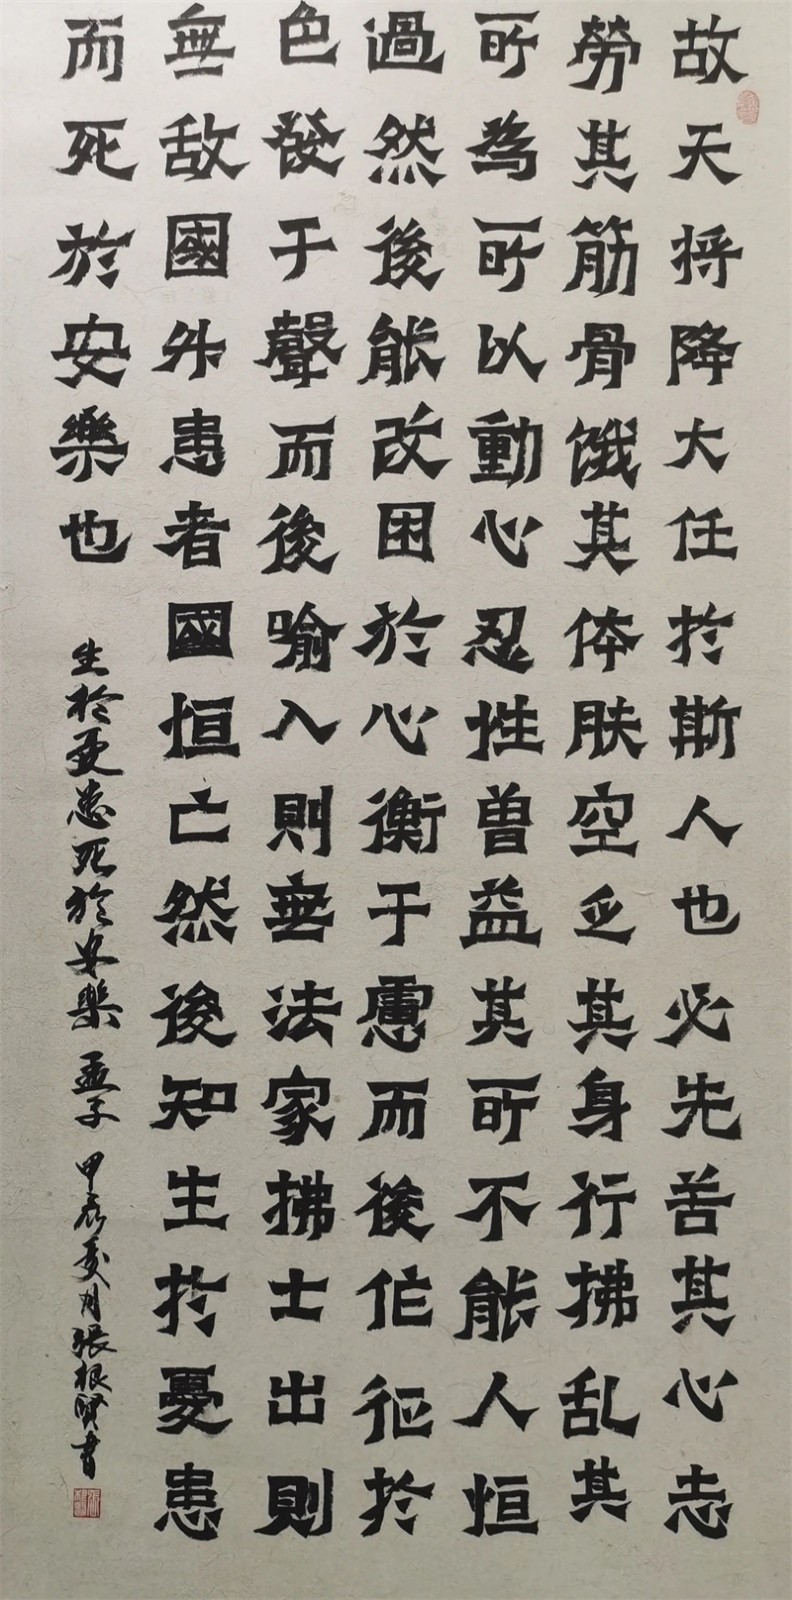 故天将降大任於斯人也必先苦其心志
勞其筋骨饿其体肤空乏其身行拂乱其
所為所以動心忍性曾益其所不能人恒
過然後能改困於心衡于慮而後作征於
色發于聲而後喻入則無法家拂士出則
無敌國外患者國恒亡然後知生於憂患
而死於安樂也
生於憂患死於安樂 孟子 甲辰夏月張根賢書